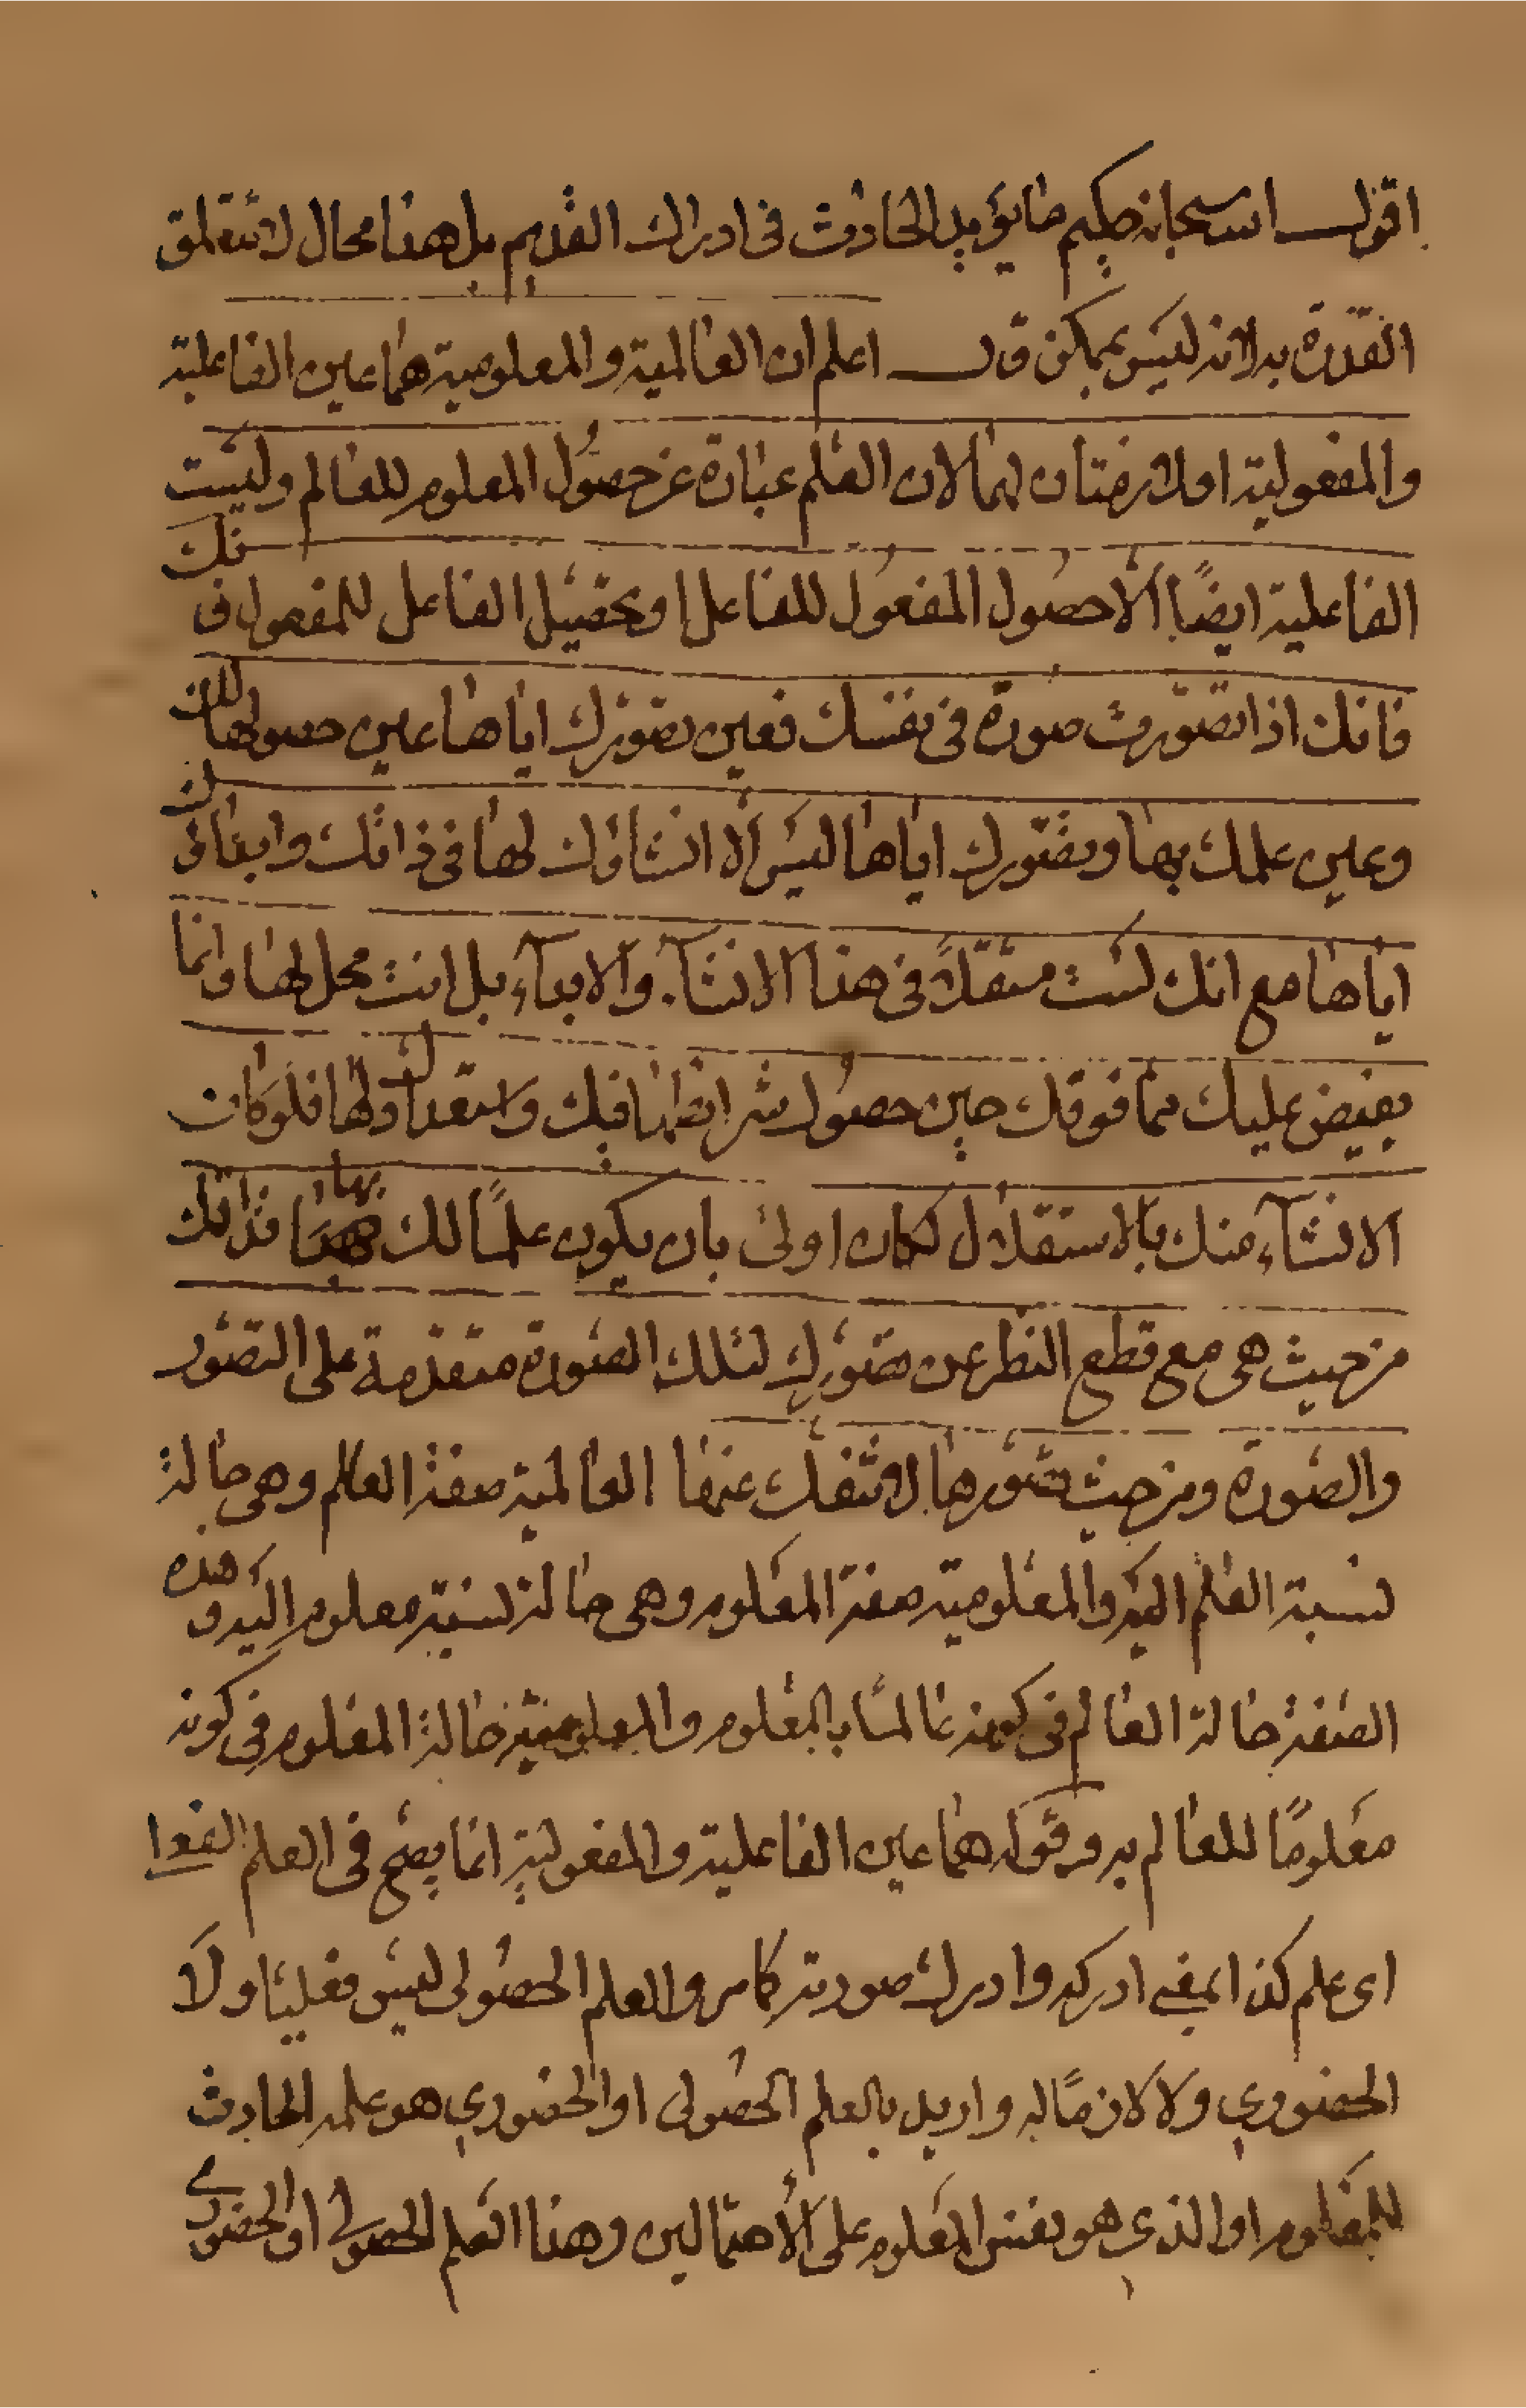 اقول الله سبحانه حكيم ما يؤيد الحادث فى ادراك القديم بل هذا محال لا تتعلق
القدرة به لانه ليس بممكن قال اعلم ان العالمية والمعلومية هما عين الفاعلية
والمفعولية او لازمتان لهما لان العلم عبارة عن حصول المعلوم للعالم وليست
الفاعلية ايضًا الا حصول المفعول للفاعل او تحصيل الفاعل للمفعول فى
فانك اذا تصورت صورة فى نفسك فعين تصورك اياها عين حصولها لك
وعين علمك بها وتصورك اياها ليس الا انشاؤك لها فى ذاتك وابقاؤك
اياها مع انك لست مستقلاً فى هذا الانشآء والابقآء بل انت محل لها وانما
يفيض عليك مما فوقك حين حصول شرائطها فيك واستعدادك لها فلو كان
الانشآء منك بالاستقلال لكان اولى بان يكون علمًا لك بها فذاتك
من حيث هى مع قطع النظر عن تصورك لتلك الصورة متقدمة على التصور
والصورة ومن حيث تصورها لا تنفك عنها العالمية صفة العالم وهى حالة
نسبة العلم اليه والمعلومية صفة المعلوم وهى حالة نسبة معلوم اليه وهذه
الصفة حالة العالم فى كونه عالمًا بالمعلوم والمعلومية حالة المعلوم فى كونه
معلومًا للعالم به وقوله هما عين الفاعلية والمفعولية انما يصح فى العلم الفعلى
اى علم كذا بمعنى ادركه وادرك صورته كما مر والعلم الحصولى ليس فعليا ولا
الحضورى ولا لازمًا له واريد بالعلم الحصولى او الحضورى هو علمه الحادث
للمعلوم او الذى هو نفس المعلوم على الاحتمالين وهذا العلم الحصولى او الحضورى